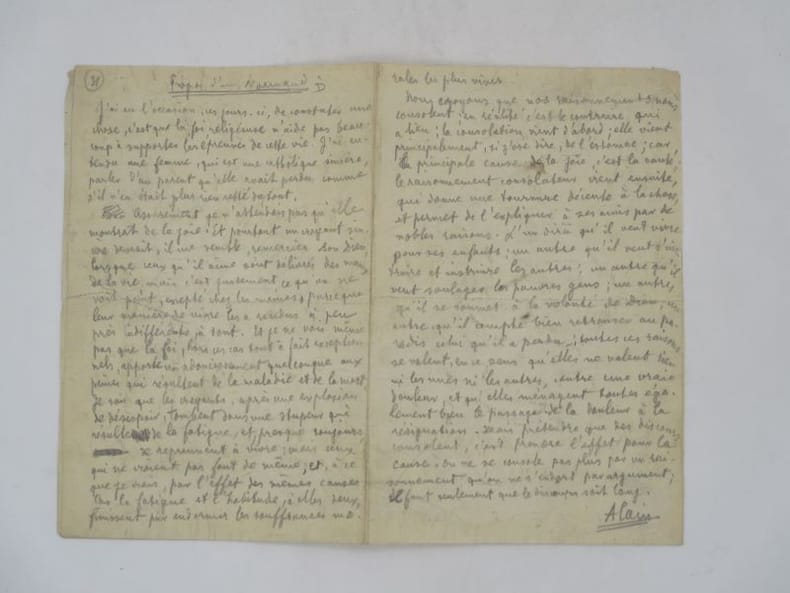 31
Propos d'un Normand
J'ai eu l'occasion, ces jours-ci, de constater une
chose, c'est que la foi religieuse n'aide pas beau-
coup à supporter les épreuves de cette vie. J'ai en-
tendu une femme, qui est une catholique sincère,
parler d'un parent qu'elle avait perdu comme
s'il n'en était plus rien resté du tout.
Assurément je n'attendais pas qu'elle
montrât de la joie. Et pourtant un croyant sin-
cère devrait, il me semble, remercier son Dieu,
lorsque ceux qu'il aime sont délivrés des maux
de la vie, mais c'est justement ce qu'on ne
voit point, excepté chez les moines, parce que
leur manière de vivre les a rendus à peu
près indifférents à tout. Et je ne vois même
pas que la foi, hors ces cas tout à fait exception-
nels, apporte un adoucissement quelconque aux
peines qui résultent de la maladie et de la mort.
Je vois que les croyants, après une explosion
de désespoir, tombent dans une stupeur qui
résulte de la fatigue, et presque toujours
se reprennent à vivre; mais ceux
qui ne croient pas font de même, et, à ce
que je crois, par l'effet des mêmes causes
Car la fatigue et l'habitude, à elles deux,
finissent par endormir les souffrances mo-
rales les plus vives.
Nous croyons que nos raisonnements nous
consolent; en réalité c'est le contraire qui
a lieu; la consolation vient d'abord; elle vient
principalement, si j'ose dire, de l'estomac; car,
la principale cause de la joie, c'est la santé;
le raisonnement consolateur vient ensuite,
qui donne une tournure décente à la chose,
et permet de l'expliquer à ses amis par de
nobles raisons. L'un dira qu'il veut vivre
pour ses enfants; un autre qu'il veut s'ins-
truire et instruire les autres; un autre qu'il
veut soulager les pauvres gens; un autre,
qu'il se soumet à la volonté de Dieu; un
autre qu'il compte bien retrouver au pa-
radis celui qu'il a perdu; toutes ces raisons
se valent, en ce sens qu'elles ne valent rien
ni les unes ni les autres, contre une vraie
douleur, et qu'elles ménagent toutes éga-
lement bien le passage de la douleur à la
résignation. Mais prétendre que des discours
consolent, c'est prendre l'effet pour la
cause. On ne se console pas plus par un rai-
sonnement qu'on ne s'endort par argument;
il faut seulement que le discours soit long.
Alain